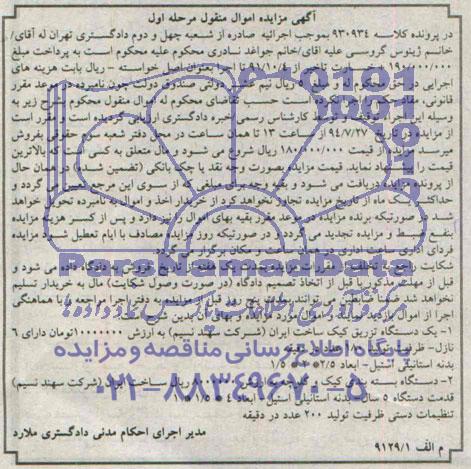 آگهی مزایده اموال منقول مرحله اول
در پرونده کلاسه ۹۳۰۹۳۴ بموجب اجرائیه صادره از شعبه چهل و دوم دادگستری تهران له آقای/
خانم ژینوس گروسی علیه آقای/خانم جواهد نادری محکوم علیه محکوم است به پرداخت مبلغ
۱۹۰/۰۰۰/۰۰۰ خسارت تاخیر از ۹۱/۱۰/۴ تا بعنوان اصل خواسته - ریال بابت هزینه های
اجرایی در حق محکوم له و مبلغ ریال نیم عشر دولتی صندوق دولت چون نامبرده در موعد مقرر
قانونی، مفاد حکم را اجرا نکرده است حسب تقاضای محکوم له اموال منقول محکوم بشرح زیر به
وسیله این اجرا توقیف و توسط کارشناس رسمی خبره دادگستری ارزیابی گردیده است و مقرر است
از مزایده در تاریخ ۹۴/۷/۲۷ از ساعت ۱۳ تا همان ساعت در محل دفتر شعبه سوم حقوقی بفروش
میرسد مزایده از قیمت ۱۸۰۰/۰۰۰ ریال شروع می شود و مال متعلق به کسی است که بالاترین
قیمت را پیشنهاد نماید. قیمت مزایده بصورت وجه نقد یا چک بانکی (تضمین شده) در همان حال
از برنده مزایده دریافت می شود و بقیه وجه برای مبلغی که از سوی این مرجع تعیین می گردد و
حداکثر یک ماه از تاریخ مزایده تجاوز نخواهد کرد از خریدار اخذ و اموال به نامبرده تحویل خواهد
شد در صورتیکه برنده مزایده در موعد مقرر بقیه بهای اموال را نپردازد و پس از کسر هزینه مزایده
بنفع ضبط و مزایده تجدید می گردد. در صورتیکه روز مزایده مصادف با ایام تعطیل شد مزایده
فردای آداری ساعت اداری در همان ساعت و مکان برگزار می گردد.
شکایت راجع به تخلف از مقررات مزایده بمدت یک هفته از تاریخ فروش به دادگاه داده می شود و
قبل از مهلت مذکور یا قبل از اتخاذ تصمیم دادگاه (در صورت وصول شکایت) مال به خریدار تسلیم
نخواهد شد ضمناً طالبین می توانند بمدت پنج روز قبل از مزایده به دفتر اجرا مراجعه و با هماهنگی
اجرا از اموال بازدید نمایند
۱- یک دستگاه تزریق کیک ساخت ایران (شرکت سهند نسیم) به ارزش ۱۰۰۰۰۰۰۰۰ تومان دارای ۶
نازل- ظرفیت عدد در دقیقه
بدنه استانیلی استیل- ابعاد ۲/۵
۲- دستگاه بسته بندی کیک و کلوچه به ارزش ۸۰۰۰۰۰۰۰۰ ریال ساخت ایران (شرکت سهند نسیم)
قدمت دستگاه ۵ سال - بدنه استانیلی استیل- ابعاد
تنظیمات دستی ظرفیت تولید ۲۰۰ عدد در دقیقه
مدیر اجرای احکام مدنی دادگستری ملارد
م الف ۹۱۲۹/۱
ParsNamadData
پایگاه اطلاع رسانی مناقصه و مزایده
۰۲۱-۸۸۳۴۹۶۷۰-۵